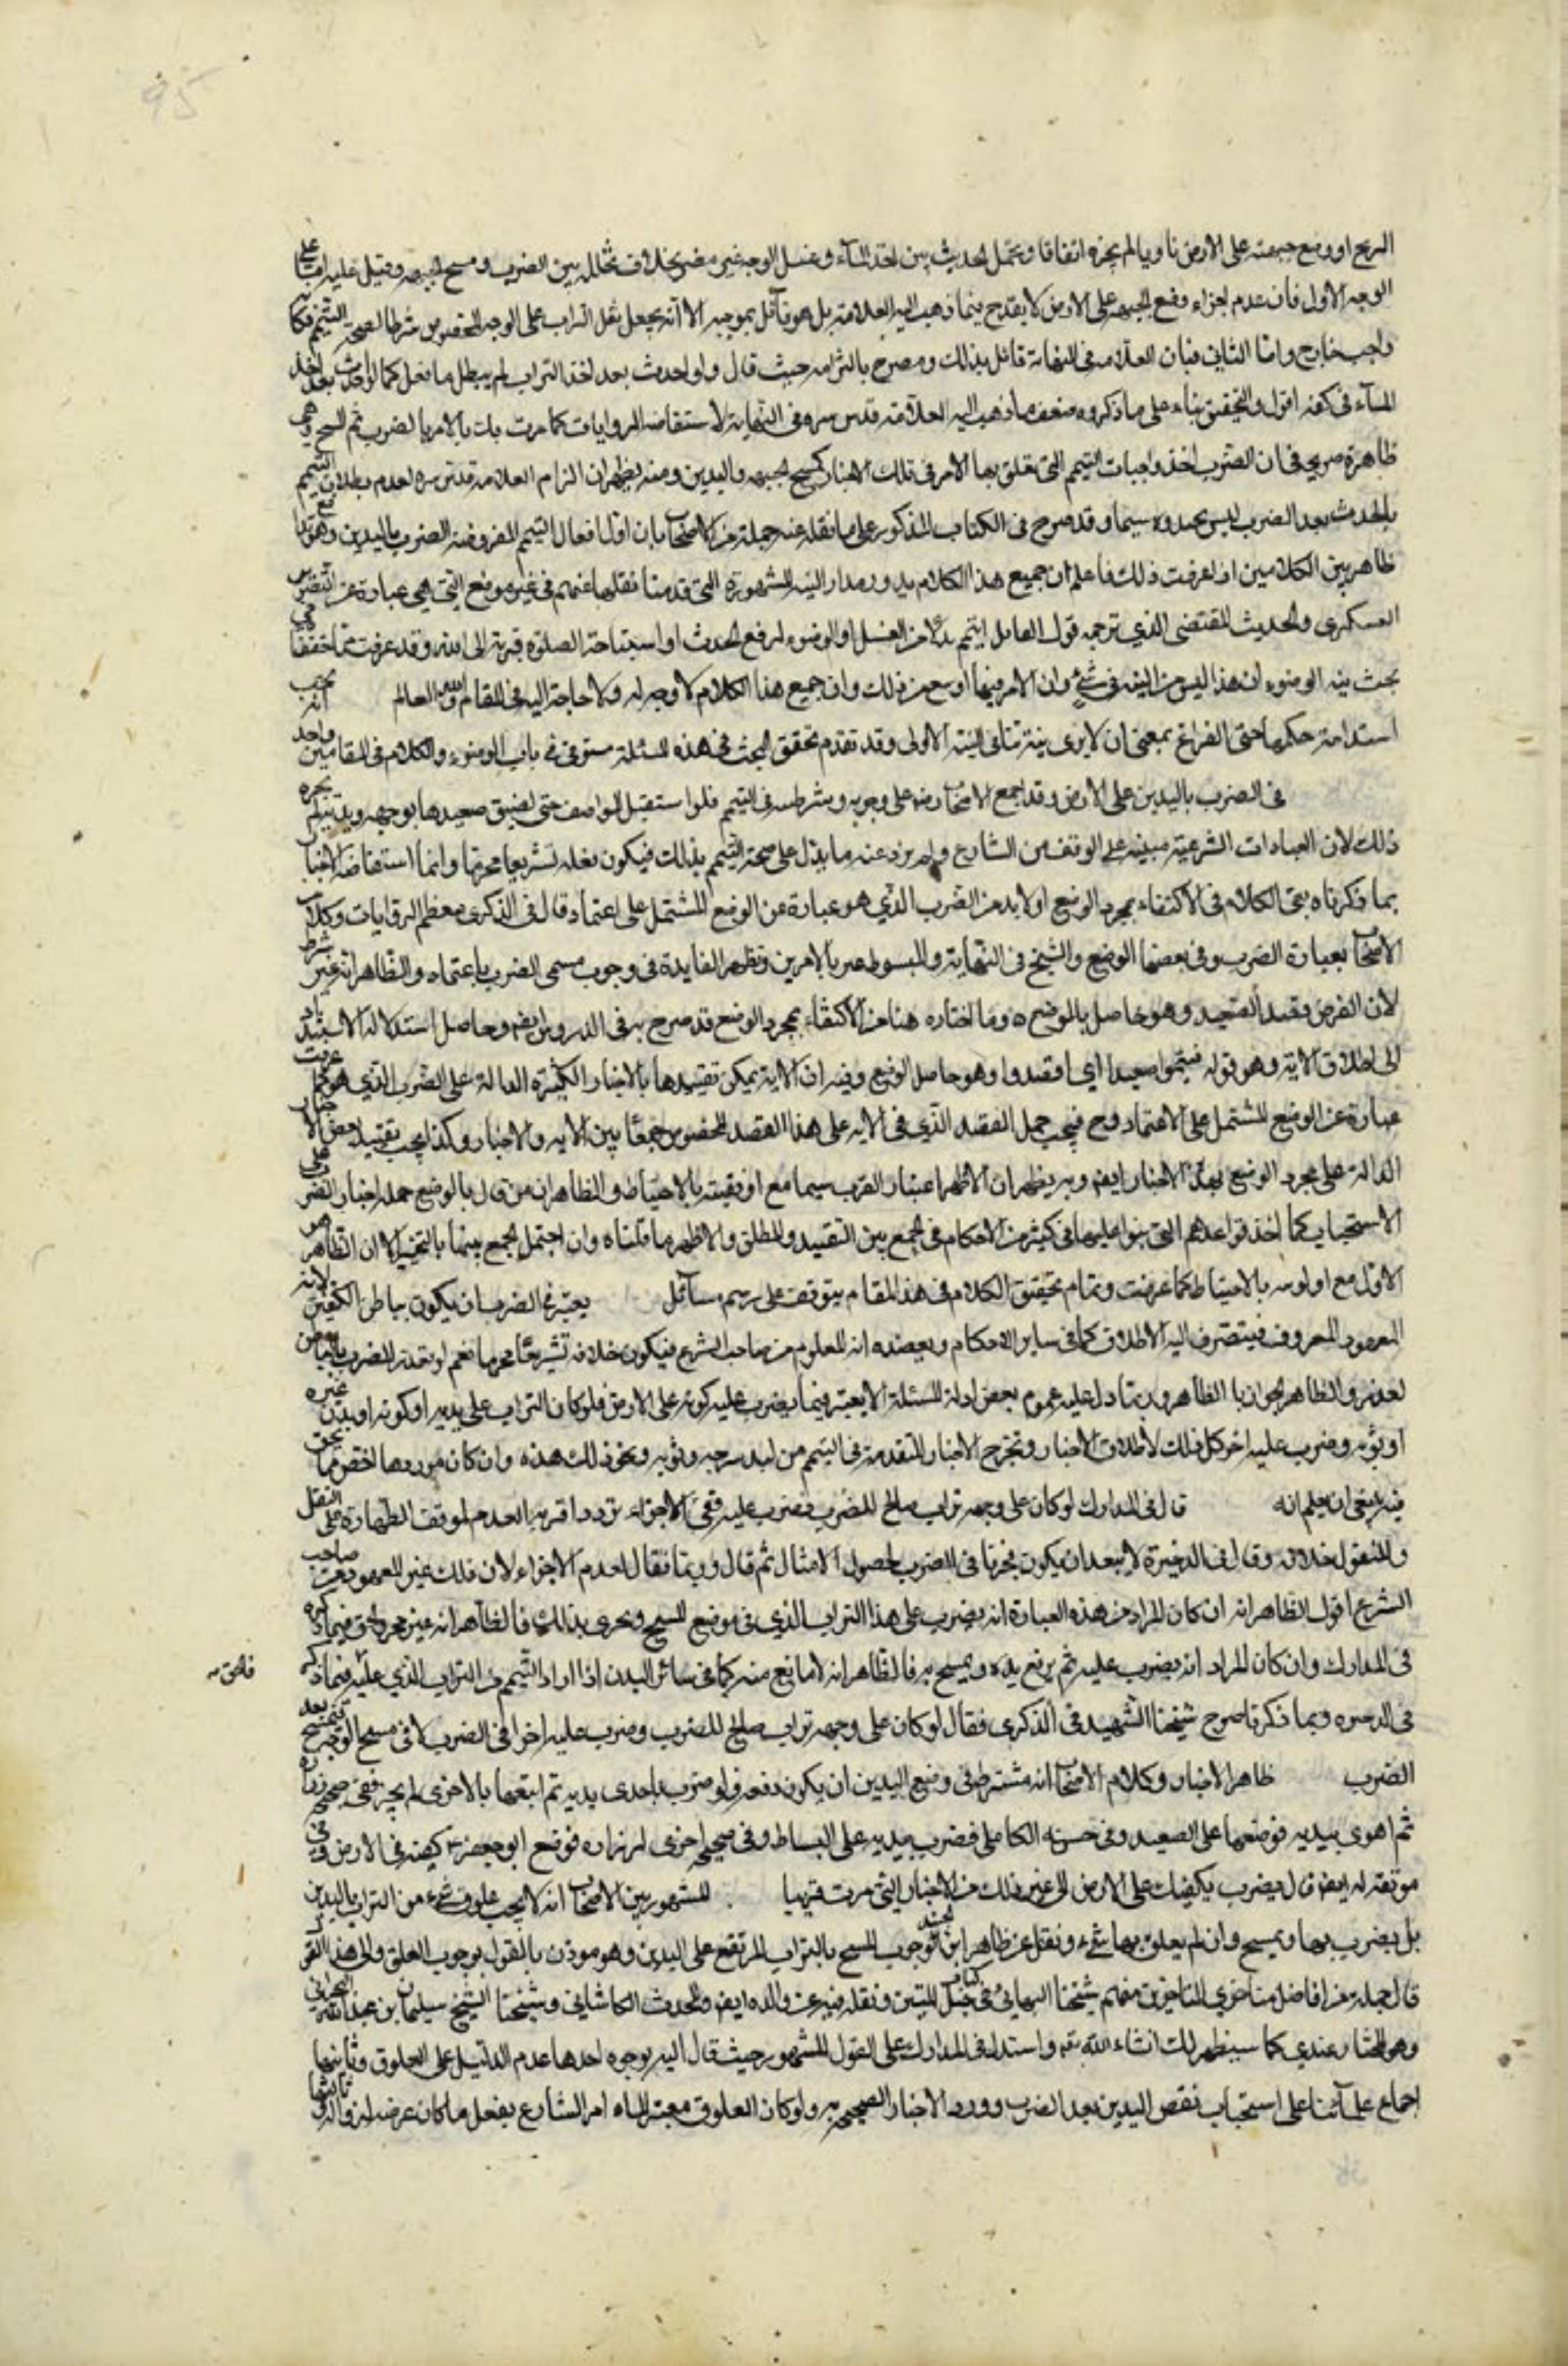 95
الريح او وضع جبهته على الارض ناويا لم يجزه اتفاقا ويحتمل الحديث بين اخذ الماء وغسل الوجه غير مضر بخلاف تخلله بين الضرب ومسح الجبهة وقيل عليه اما على
الوجه الاول فان عدم اجزاء وضع الجبهة على الارض لا يقدح فيما ذهب اليه العلامة بل هو قائل بموجبه الا انه يجعل نقل التراب على الوجه المخصوص شرطا لصحة التيمم فكانه
واجب خارج واما الثاني فبان العلامة في النهاية قائل بذلك ومصرح بالتزامه حيث قال ولو احدث بعد اخذ التراب لم يبطل ما فعل كما لو احدث بعد اخذ
الماء في كفه اقول والتحقيق بناء على ما ذكروه ضعف ما ذهب اليه العلامة قدس سره في النهاية لاستفاضة الروايات كما مرت بك بالامر بالضرب ثم المسح وهي
ظاهرة صريحة في ان الضرب احد واجبات التيمم التي تعلق بها الامر في تلك الاخبار كمسح الجبهة واليدين ومنه يظهر ان التزام العلامة قدس سره لعدم بطلان التيمم
بالحدث بعد الضرب ليس بجيد سيما وقد صرح في الكتاب المذكور على ما نقله عنه جملة من الاصحاب بان اول افعال التيمم المفروضة الضرب باليدين وهو تدافع
ظاهر بين الكلامين اذا عرفت ذلك فاعلم ان جميع هذا الكلام يدور مدار النية المشهورة التي قدمنا نقلها عنهم في غير موضع التي هي عبارة عن التصوير
الفكري والحديث المقتضى الذي ترجمه قول القائل اتيمم بدلا من الغسل او الوضوء لرفع الحدث او استباحة الصلوة قربة الى الله وقد عرفت مما حققناه في
بحث نية الوضوء ان هذا ليس من النية في شئ وان الامر فيها اوسع من ذلك وان جميع هذا الكلام لا وجه له ولا حاجة اليه في المقام والله العالم انه يجب
استدامة حكمها حتى الفراغ بمعنى ان لا ينوى نية تنافي النية الاولى وقد تقدم تحقيق البحث في هذه المسئلة مستوفى في باب الوضوء والكلام في المقامين واحد
في الضرب باليدين على الارض وقد اجمع الاصحاب رض على وجوبه وشرطيته في التيمم فلو استقبل العواصف حتى لصق صعيدها بوجهه ويديه لم يجزه
ذلك لان العبادات الشرعية مبنية على التوقف من الشارع ولم يرد عنه ما يدل على صحة التيمم بذلك فيكون فعله تشريعا محرما وانما استفاضة الاخبار
بما ذكرناه بقى الكلام في الاكتفاء بمجرد الوضع او لا بد من الضرب الذي هو عبارة عن الوضع المشتمل على اعتماد قال في الذكرى معظم الروايات وكلام
الاصحاب بعبارة الضرب وفي بعضها الوضع والشيخ في النهاية والمبسوط عبر بالامرين وتظهر الفايدة في وجوب مسمى الضرب باعتماد والظاهر انه غير شرط
لان الغرض وقصد الصعيد وهو حاصل بالوضع وما اختاره هنا من الاكتفاء بمجرد الوضع قد صرح به في الدروس ايضا وحاصل استدلاله الاستناد
الى اطلاق الاية وهو قوله فتيمموا صعيدا اي اقصدوا وهو حاصل الوضع وفيه ان الاية يمكن تقييدها بالاخبار الكثيرة الدالة على الضرب الذي هو كما عرفت
عبارة عن الوضع المشتمل على الاعتماد وح فيجب حمل القصد الذي في الاية على هذا القصد المخصوص جمعا بين الاية والاخبار وكذا يجب تقييد بعض الاخبار
الدالة على مجرد الوضع بهذه الاخبار ايضا وبه يظهر ان الاظهر اعتبار الضرب سيما مع اوفقيته بالاحتياط والظاهر ان من قال بالوضع حمل اخبار الضرب على
الاستحباب كما احد قواعدهم التي بنوا عليها في كثير من الاحكام في الجمع بين التقييد والمطلق والاظهر ما قلناه وان احتمل الجمع بينها بالتخيير الا ان الظاهر هو
الاول مع اولويته بالاحتياط كما عرفت وتمام تحقيق الكلام في هذا المقام يتوقف على رسم مسائل يعتبر في الضرب ان يكون بباطن الكفين لانه
المعهود المعروف فيتصرف اليه الاطلاق كما في ساير الاحكام ويعضده انه المعلوم من صاحب الشرع فيكون خلافه تشريعا محرما نعم لو تعذر الضرب بالباطن
لعذر والظاهر الجواز بالظاهر وربما دل عليه عموم بعض ادلة المسئلة لا يعتبر فيما يضرب عليه كونه على الارض فلو كان التراب على يديه او كونه او بدن غيره
او ثوبه وضرب عليه اخر كل ذلك لاطلاق الاخبار وتخرج الاخبار المتقدمة في التيمم من لبد سرجه وثوبه ونحو ذلك هذه وان كان موردها اختص بما نحن
فيه ينبغي ان يعلم انه قال في المدارك لو كان على وجهه تراب صالح للضرب فضرب عليه ففى الاجزاء تردد اقربه العدم لتوقف الطهارة على النقل
والمنقول خلافه وقال في الذخيرة لا يبعد ان يكون مجزيا في الضرب لحصول الامتثال ثم قال وربما يقال لعدم الاجزاء لان ذلك غير المعهود من صاحب
الشرع اقول الظاهر انه ان كان المراد من هذه العبارة انه يضرب على هذا التراب الذي في موضع المسح ويجزى بذلك فالظاهر انه غير مجز والحق فيما ذكره
في المدارك وان كان المراد انه يضرب عليه ثم يرفع يده ويمسح به فالظاهر انه لا مانع منه كما في سائر البدن اذا اراد التيمم من التراب الذي عليه فما ذكره
في الذخيره وبما ذكرنا صرح شيخنا الشهيد في الذكرى فقال لو كان على وجهه تراب صالح للضرب وضرب عليه اجزا في الضرب لا في مسح الوجه فيمسح بعد
الضرب ظاهر الاخبار وكلام الاصحاب انه يشترط في وضع اليدين ان يكون دفعة فلو ضرب باحدى يديه ثم اتبعها بالاخرى لم يجز ففى صحيحة زرارة
ثم اهوى بيديه فوضعهما على الصعيد وفي حسنة الكاهلي فضرب بيديه على البساط وفي صحيحة اخرى لزرارة فوضع ابو جعفر ع كفيه في الارض وفي
موثقته ايضا قال ويضرب بكفيك على الارض الى غير ذلك من الاخبار التي مرت قريبا المشهور بين الاصحاب انه لا يجب علوق شئ من التراب باليدين
بل يضرب بهما ويمسح وان لم يعلق بهما شئ ونقل عن ظاهر ابن الجنيد وجوب المسح بالتراب المرتفع على اليدين وهو موذن بالقول بوجوب العلق والى هذا القول
قال جملة من افاضل متاخري المتاخرين منهم شيخنا البهائي في كتاب حبل المتين ونقله فيه عن والده ايضا والمحدث الكاشاني وشيخنا الشيخ سليمان بن عبد الله البحراني
وهو المختار عندي كما سيظهر لك انشاء الله تعه واستدل في المدارك على القول المشهور حيث قال اليه بوجوه احدها عدم الدليل على العلوق وثانيها
اجماع علمآئنا على استحباب نفض اليدين بعد الضرب وورود الاخبار الصحيحة به ولو كان العلوق معتبرا لما امر الشارع بفعل ما كان عرضة لزواله وثالثها